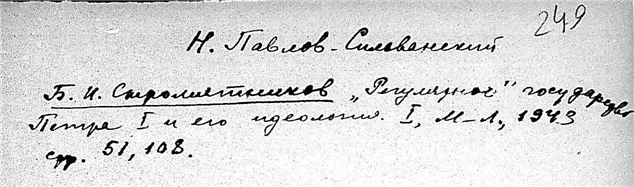 249
Н. Павлов-Сильванский
Б. И. Сыромятников „Регулярное" государство
Петра I и его идеология. I, М-Л, 1943
стр. 51, 108.